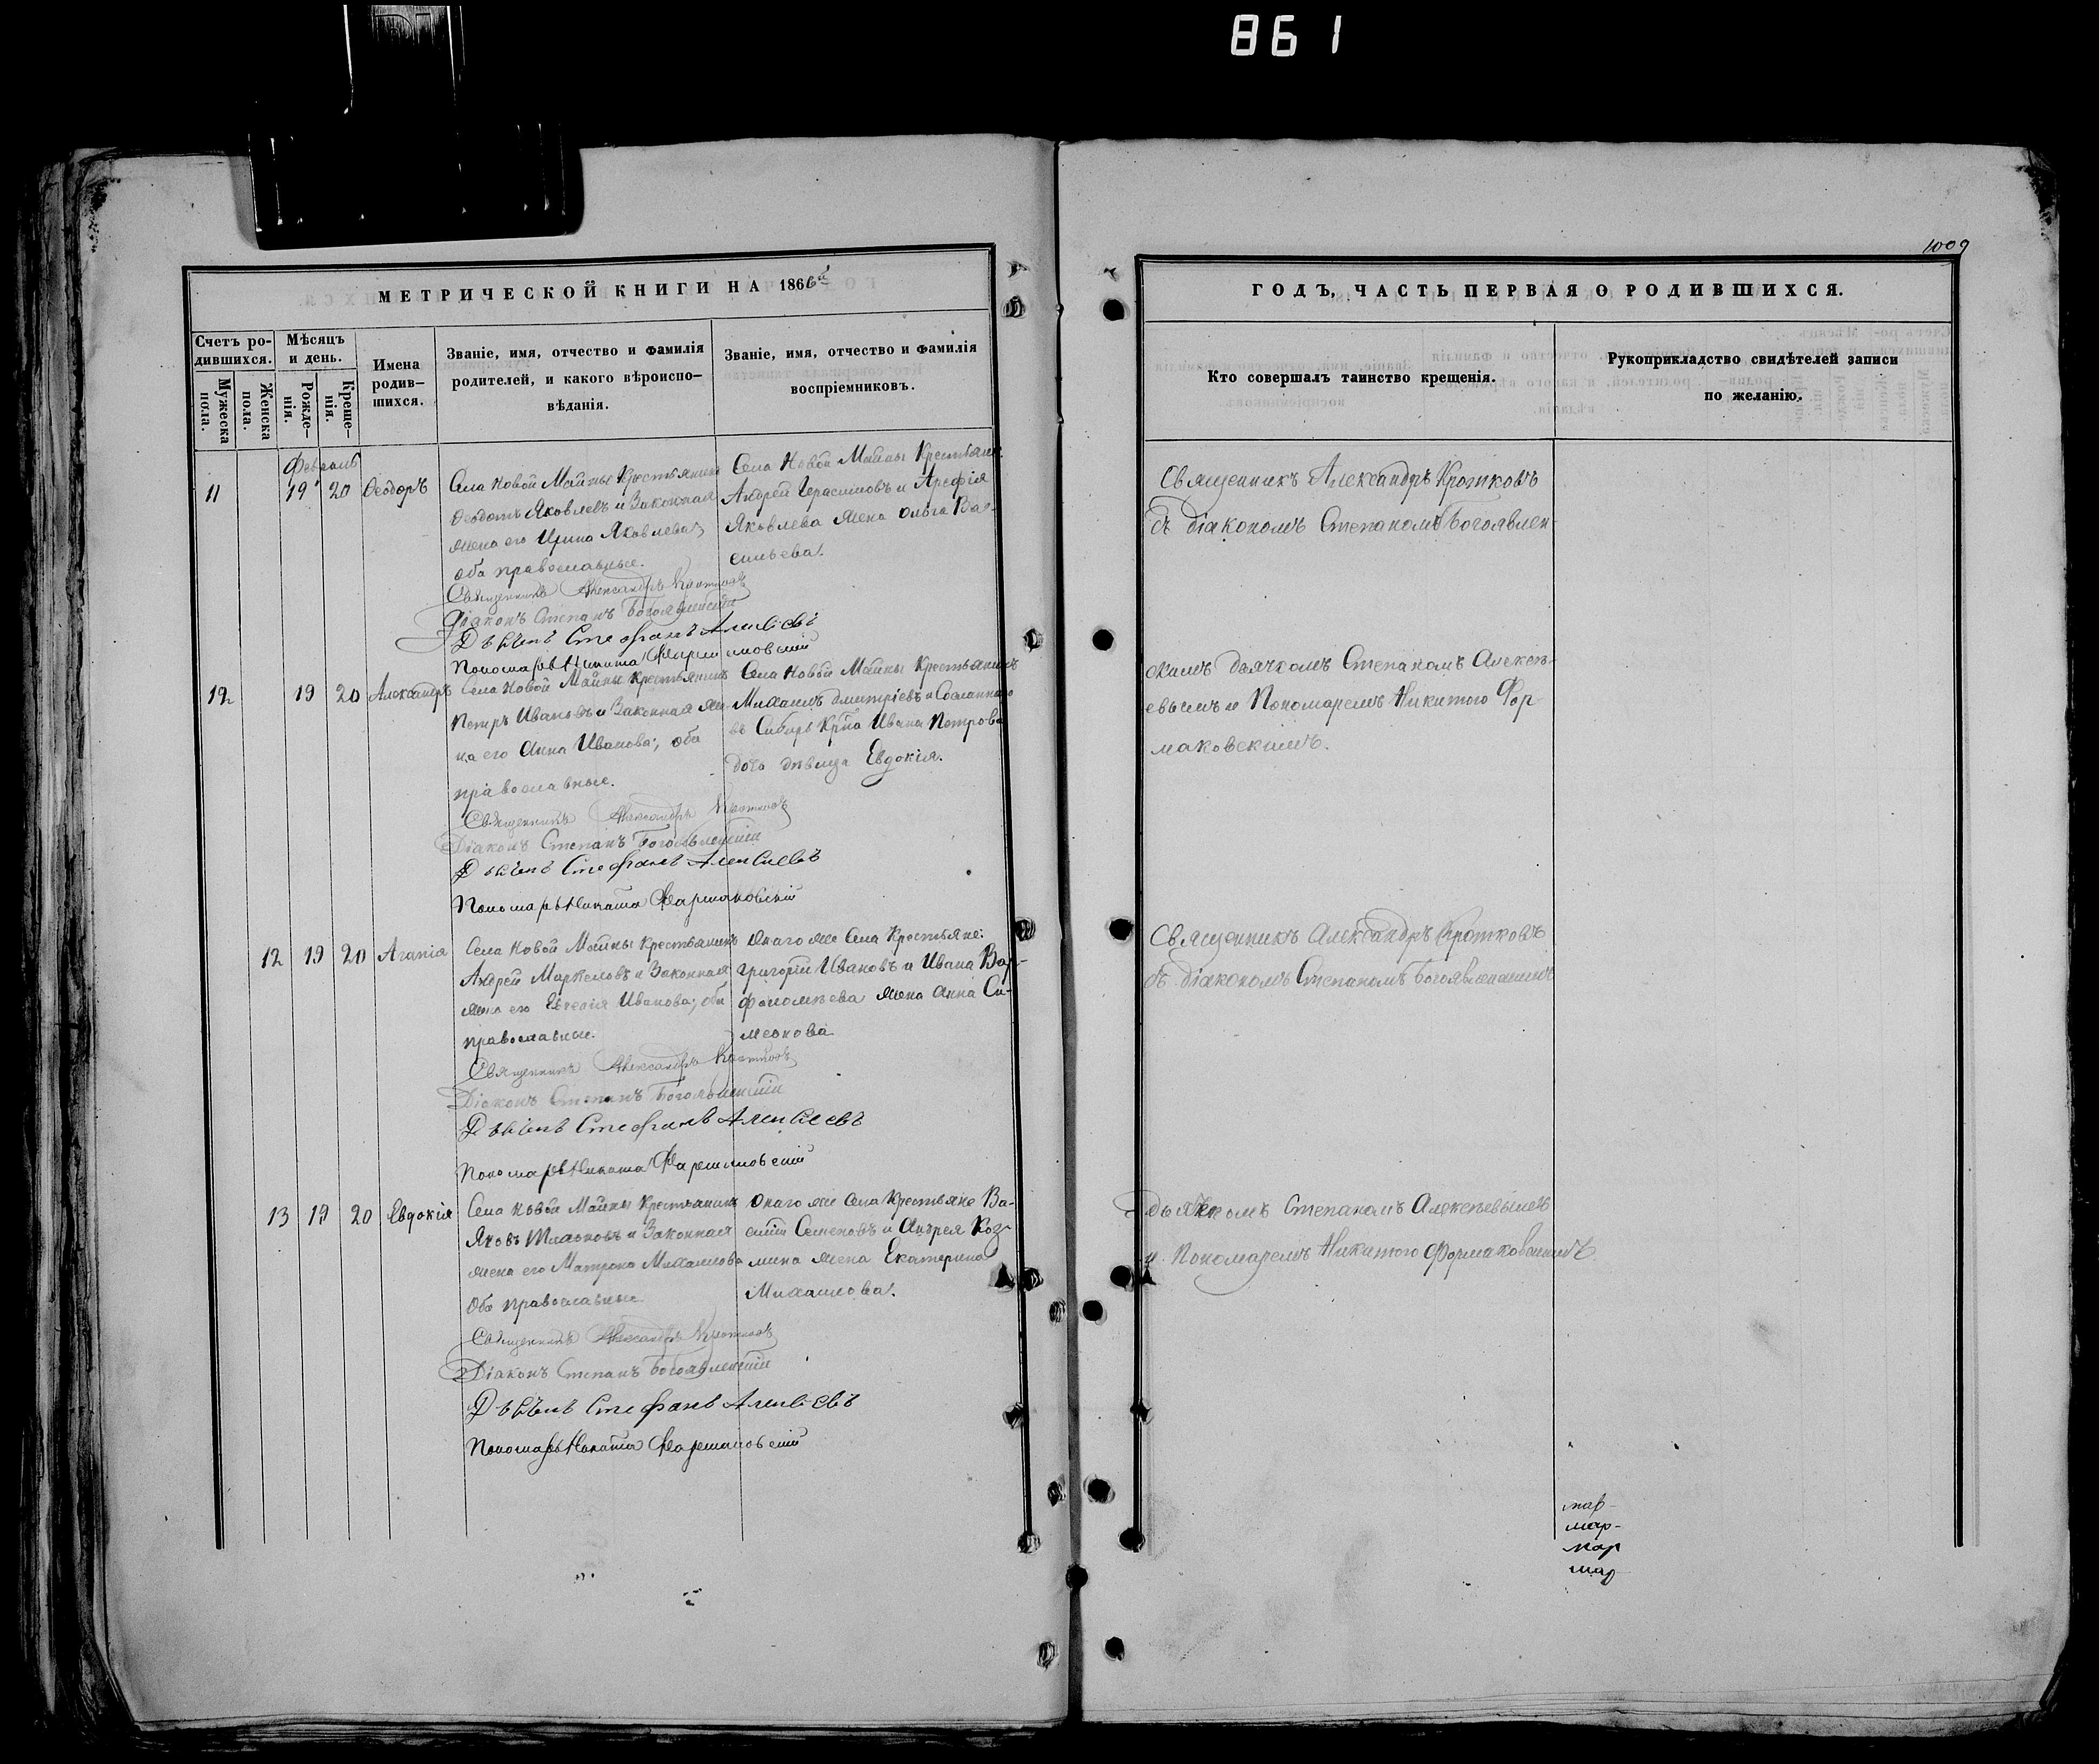 861
1009
МЕТРИЧЕСКОЙ КНИГИ НА 1866й
Счетъ ро-
дившихся.
Мужеска
пола.
Женска
пола.
Мѣсяцъ
и день.
Рожде-
нія.
Креще-
нія.
Имена
родив-
шихся.
Званіе, имя, отчество и фамилія
родителей, и какого вѣроиспо-
вѣданія.
Званіе, имя, отчество и фамилія
воспріемниковъ.
Февраль
11 19 20 Ѳеодоръ
Села Новой Майны Крестьянинъ
Ѳеодотъ Яковлевъ и Законная
жена его Ирина Яковлева,
оба православные.
Села Новой Майны Крестьян:
Андрей Герасимовъ и Арефія
Яковлева жена Ольга Ва-
сильева.
Священникъ Александръ Кротковъ
Діаконъ Степанъ Богоявленскій
Дьячекъ Стефанъ Алексѣевъ
Пономарь Никита Фармаковскій
12 19 20 Александръ
Села Новой Майны Крестьянинъ
Петръ Ивановъ и Законная же-
на его Анна Иванова, оба
православные.
Села Новой Майны Крестьянинъ
Михаилъ Дмитріевъ и Сосланнаго
въ Сибирь Крна Ивана Петрова
дочь дѣвица Евдокія.
Священникъ Александръ Кротковъ
Діаконъ Степанъ Богоявленскій
Дьячекъ Стефанъ Алексѣевъ
Пономарь Никита Фармаковскій
12 19 20 Агапія
Села Новой Майны Крестьянинъ
Андрей Маркеловъ и Законная
жена его Евгенія Иванова, оба
православные.
Онаго же Села Крестьяне:
Григорій Ивановъ и Ивана Вар-
фоломѣева жена Анна Си-
меонова
Священникъ Александръ Кротковъ
Діаконъ Степанъ Богоявленскій
Дьячекъ Стефанъ Алексѣевъ
Пономарь Никита Фармаковскій
13 19 20 Евдокія
Села Новой Майны Крестьянинъ
Яковъ и Законная
жена его Матрона Михаилова
оба православные
Онаго же Села Крестьяне Ва-
силій Семеновъ и Андрея Коз-
мина жена Екатерина
Михаилова.
Священникъ Александръ Кротковъ
Діаконъ Степанъ Богоявленскій
Дьячекъ Стефанъ Алексѣевъ
Пономарь Никита Фармаковскій
ГОДЪ, ЧАСТЬ ПЕРВАЯ О РОДИВШИХСЯ.
Кто совершалъ таинство крещенія.
Рукоприкладство свидѣтелей записи
по желанію.
Священникъ Александръ Кротковъ
съ діакономъ Степаномъ Богоявлен-
скимъ дьячкомъ Степаномъ Алексѣ-
евымъ и Пономаремъ Никитою Фор
маковскимъ.
Священникъ Александръ Кротковъ
съ діакономъ Степаномъ Богоявленскимъ
дьячкомъ Степаномъ Алексѣевымъ
и Пономаремъ Никитою Формаковскимъ
мар-
мар-
мар
мар